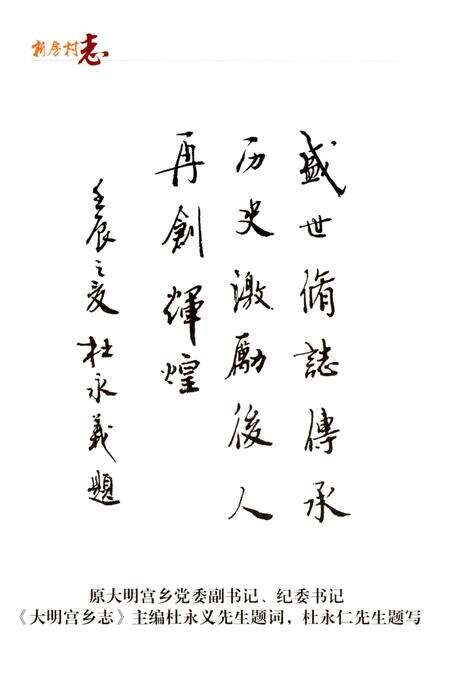 新房村志
盛世脩誌傳承
历史激勵後人
再創輝煌
壬辰之夏 杜永義題
原大明宫乡党委副书记、纪委书记
《大明宫乡志》主编杜永义先生题词，杜永仁先生题写